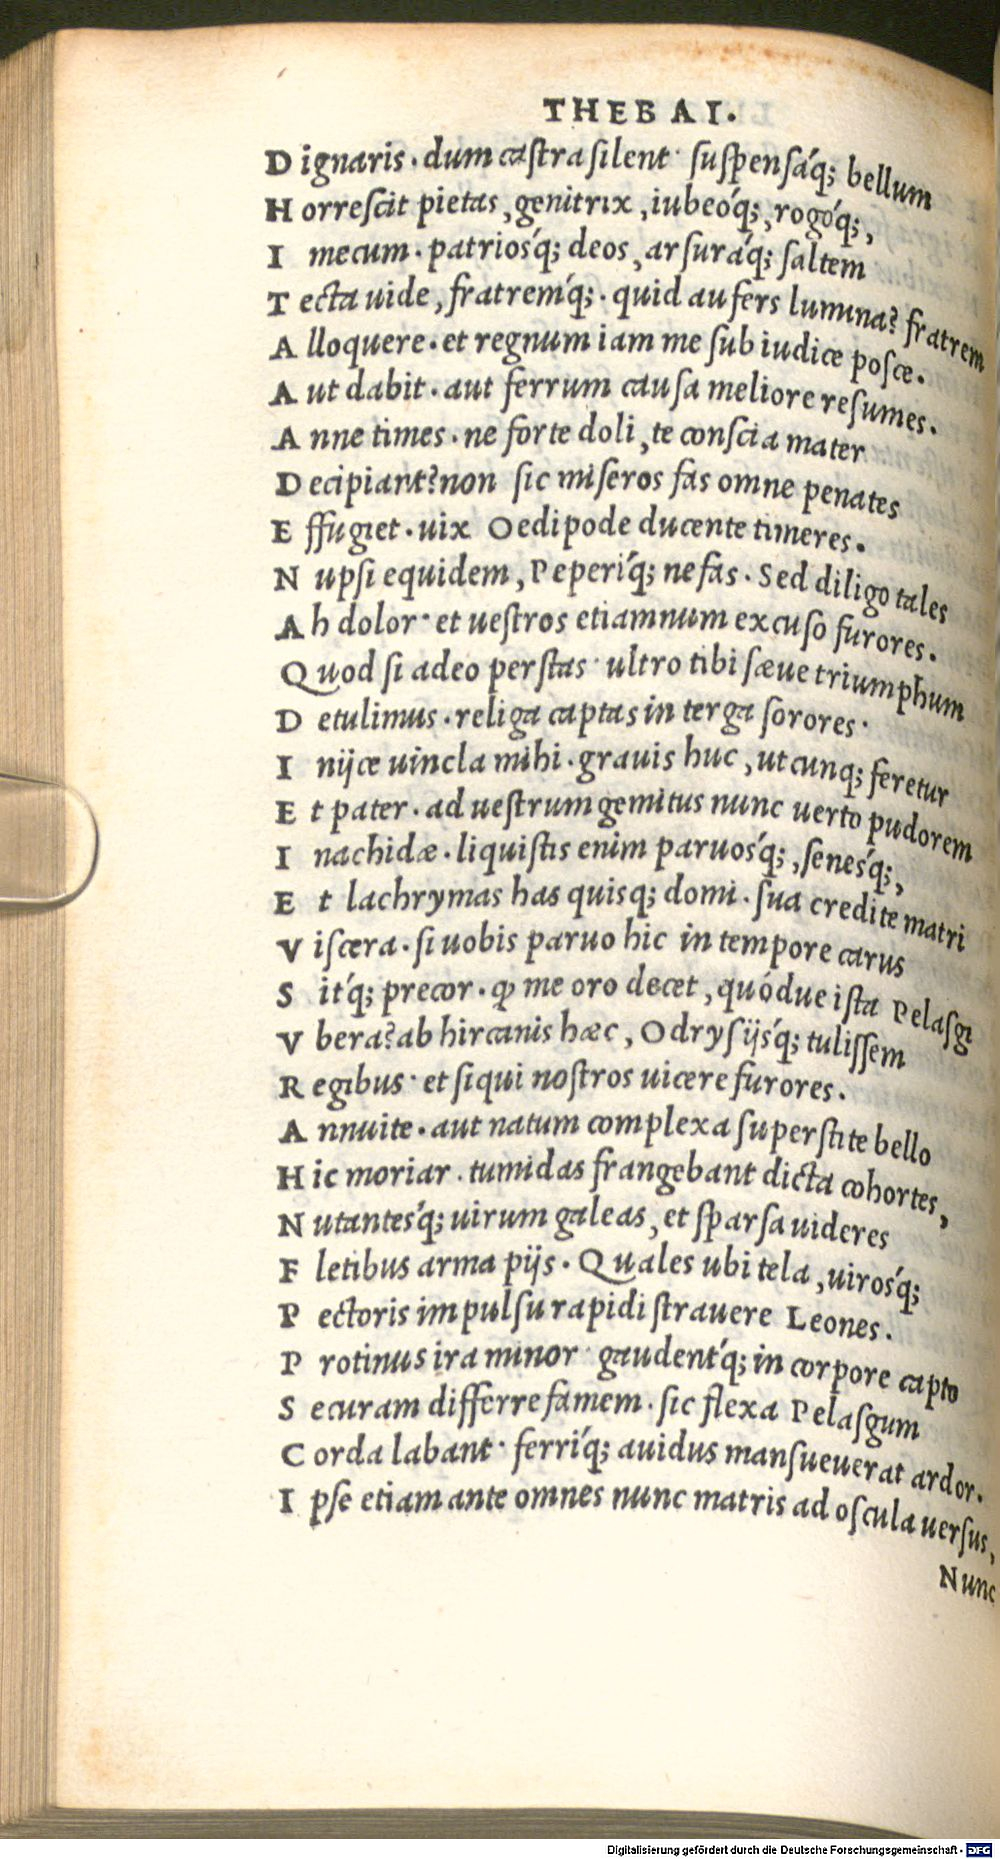 THEBAI.
Dignaris. dum castra silent· suspensáq; bellum
Horrescit pietas, genitrix, iubeóq;, rogóq;,
I mecum. patriosq́; deos, arsuráq; saltem
Tecta uide, fratremq́;. quid aufers lumina? fratrem
Alloquere. et regnum iam me sub iudice posce.
Aut dabit. aut ferrum causa meliore resumes.
Anne times. ne forte doli, te conscia mater
Decipiant? non sic miseros fas omne penates
Effugiet. uix Oedipode ducente timeres.
Nupsi equidem, Peperiq́; nefas. Sed diligo tales
Ah dolor· et uestros etiamnum excuso furores.
Quod si adeo perstas· ultro tibi sæue triumphum
Detulimus. religa captas in terga sorores·
Inijce uincla mihi. grauis huc, utcunq; feretur
Et pater. ad uestrum gemitus nunc uerto pudorem
Inachidæ. liquistis enim paruosq́;, senesq́;,
Et lachrymas has quisq; domi. sua credite matri
Viscera. si uobis paruo hic in tempore carus
Sitq́; precor. ꝙ me oro decet, quódue ista Pelasgi
Vbera? ab hircanis hæc, Odrysijsq́; tulissem
Regibus· et siqui nostros uicere furores.
Annuite. aut natum complexa superstite bello
Hic moriar. tumidas frangebant dicta cohortes,
Nutantesq́; uirum galeas, et sparsa uideres
Fletibus arma pijs. Quales ubi tela, uirosq́;
Pectoris impulsu rapidi strauere Leones.
Protinus ira minor· gaudentq́; in corpore capto
Securam differre famem. sic flexa Pelasgum
Corda labant· ferriq́; auidus mansueuerat ardor.
Ipse etiam ante omnes nunc matris ad oscula uersus,
Nunc
Digitalisierung gefördert durch die Deutsche Forschungsgemeinschaft - DFG